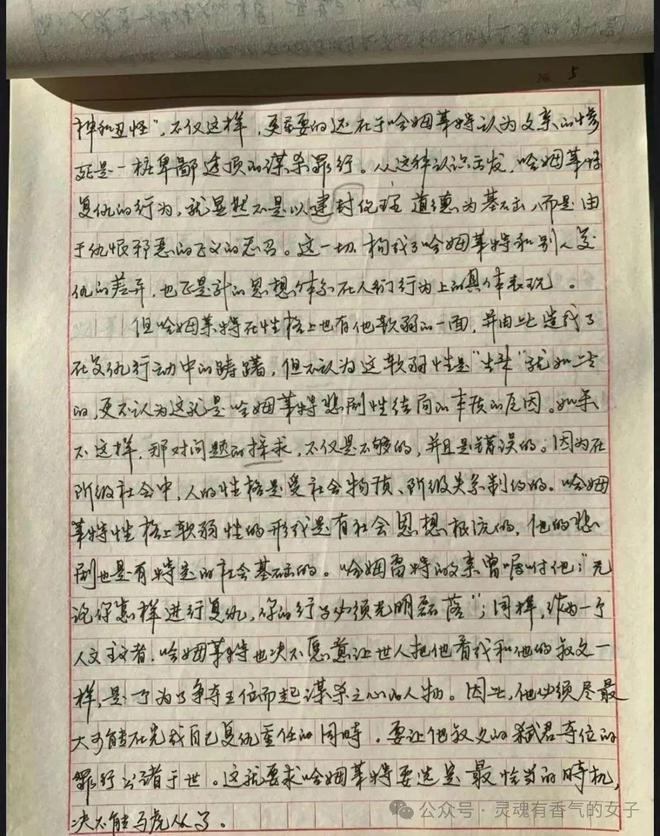 5
神和丑怪”,不仅这样,更重要的还在于哈姆莱特认为父亲的惨
死是一桩卑鄙透顶的谋杀罪行。从这种认识出发,哈姆莱特
复仇的行为,就显然不是以建封伦理道德为基础,而是由
于仇恨邪恶的正义的感召。这一切构成了哈姆莱特和别人复
仇的差异,也正是他的思想体系在人们行为上的具体表现。
但哈姆莱特在性格上也有他软弱的一面,并由此造成了
在复仇行动中的踌躇,但不认为这软弱性是“生来”就如此
的,更不认为这就是哈姆莱特悲剧性结局的本质的原因。如果
不这样,那对问题的探求,不仅是不够的,并且是错误的。因为在
阶级社会中,人的性格是受社会物质、阶级关系制约的。哈姆
莱特性格上软弱性的形成是有社会思想根源的,他的悲
剧也是有特定的社会基础的。哈姆雷特的父亲曾嘱咐他:“无
论你怎样进行复仇,你的行事必须光明磊落”;同样,作为一个
人文主义者,哈姆莱特也决不愿意让世人把他看成和他的叔父一
样,是一个为了争夺王位而起谋杀之心的人物。因此,他必须尽最
大可能在完成自己复仇重任的同时,要让他叔父的弑君夺位的
罪行公诸于世。这就要求哈姆莱特要选准最恰当的时机,
决不能马虎从事。
公众号·灵魂有香气的女子